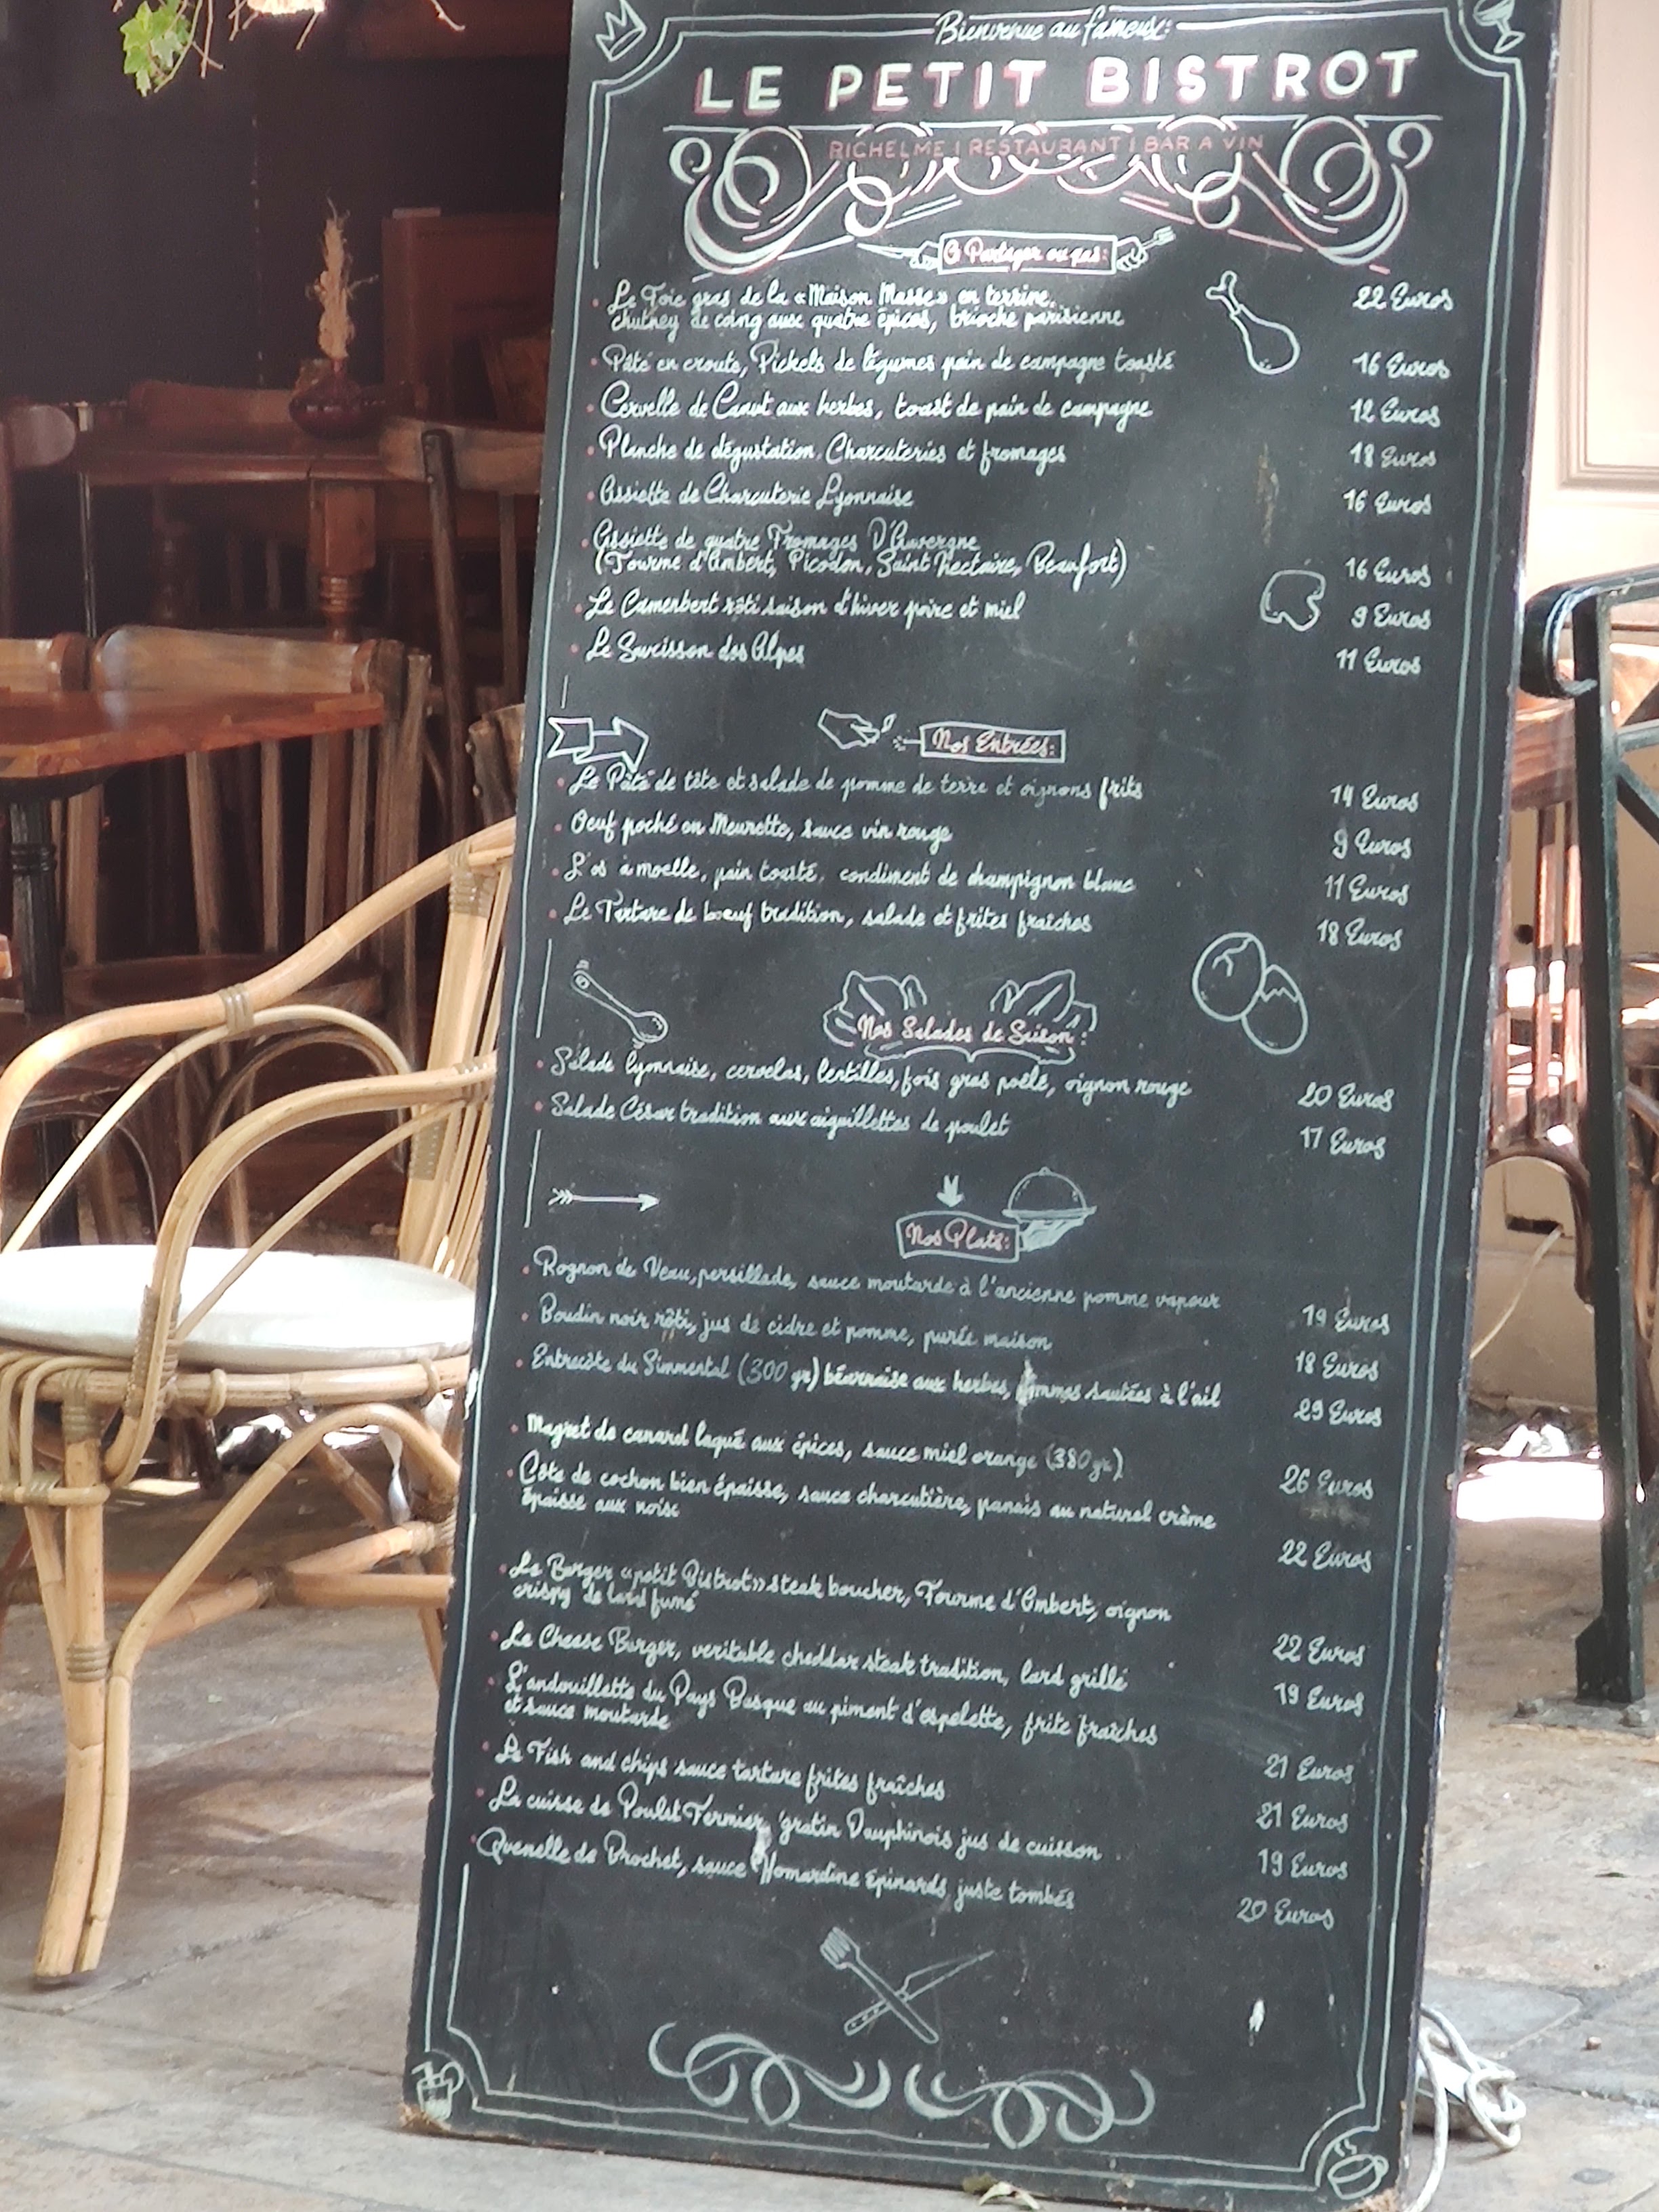 Bienvenue au fameux:
LE PETIT BISTROT
RICHELME | RESTAURANT | BAR A VIN
A Partager ou pas:
Le Foie gras de la «Maison Masse» en terrine, 22 Euros
chutney de coing aux quatre épices, brioche parisienne
Pâté en croute, Pickels de légumes pain de campagne toasté 16 Euros
Cervelle de Canut aux herbes, toast de pain de campagne 12 Euros
Planche de dégustation. Charcuteries et fromages 18 Euros
Assiette de Charcuterie Lyonnaise 16 Euros
Assiette de quatre Fromages D'Auvergne
(Fourme d'Ambert, Picodon, Saint Nectaire, Beaufort) 16 Euros
Le Camenbert rôti saison d'hiver poire et miel 9 Euros
Le Saucisson des Alpes 11 Euros
Nos Entrées:
Le Pâté de tête et salade de pomme de terre et oignons frits 14 Euros
Oeuf poché en Meurette, sauce vin rouge 9 Euros
L'os à moelle, pain toasté, condiment de champignon blanc 11 Euros
Le Tartare de bœuf tradition, salade et frites fraîches 18 Euros
Nos Salades de Saison:
Salade lyonnaise, cervelas, lentilles, fois gras poêlé, oignon rouge 20 Euros
Salade César tradition aux aiguillettes de poulet 17 Euros
Nos Plats:
Rognon de Veau, persillade, sauce moutarde à l'ancienne pomme vapeur 19 Euros
Boudin noir rôti, jus de cidre et pomme, purée maison 18 Euros
Entrecôte du Simmental (300 gr) béarnaise aux herbes, pommes sautées à l'ail 29 Euros
Magret de canard laqué aux épices, sauce miel orange (380gr) 26 Euros
Côte de cochon bien épaisse, sauce charcutière, panais au naturel crème
épaisse aux noisc 22 Euros
Le Burger «petit Bistrot» steak boucher, Fourme d'Ambert, oignon
crispy de lard fumé 22 Euros
Le Cheese Burger, veritable cheddar steak tradition, lard grillé 19 Euros
L'andouillette du Pays Basque au piment d'espelette, frite fraîches
et sauce moutarde 21 Euros
Le Fish and chips sauce tartare frites fraîches 21 Euros
La cuisse de Poulet Fermier, gratin Dauphinois jus de cuisson 19 Euros
Quenelle de Brochet, sauce Homardine épinards juste tombés 20 Euros